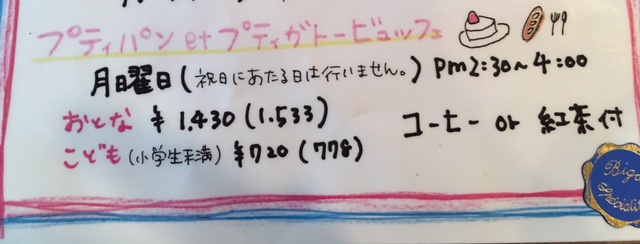 プティパン et プティガトービュッフェ
月曜日(祝日にあたる日は行いません。) pm2:30~4:00
おとな ¥1,430 (1.533) コーヒー or 紅茶付
こども (小学生未満) ¥720 (778)